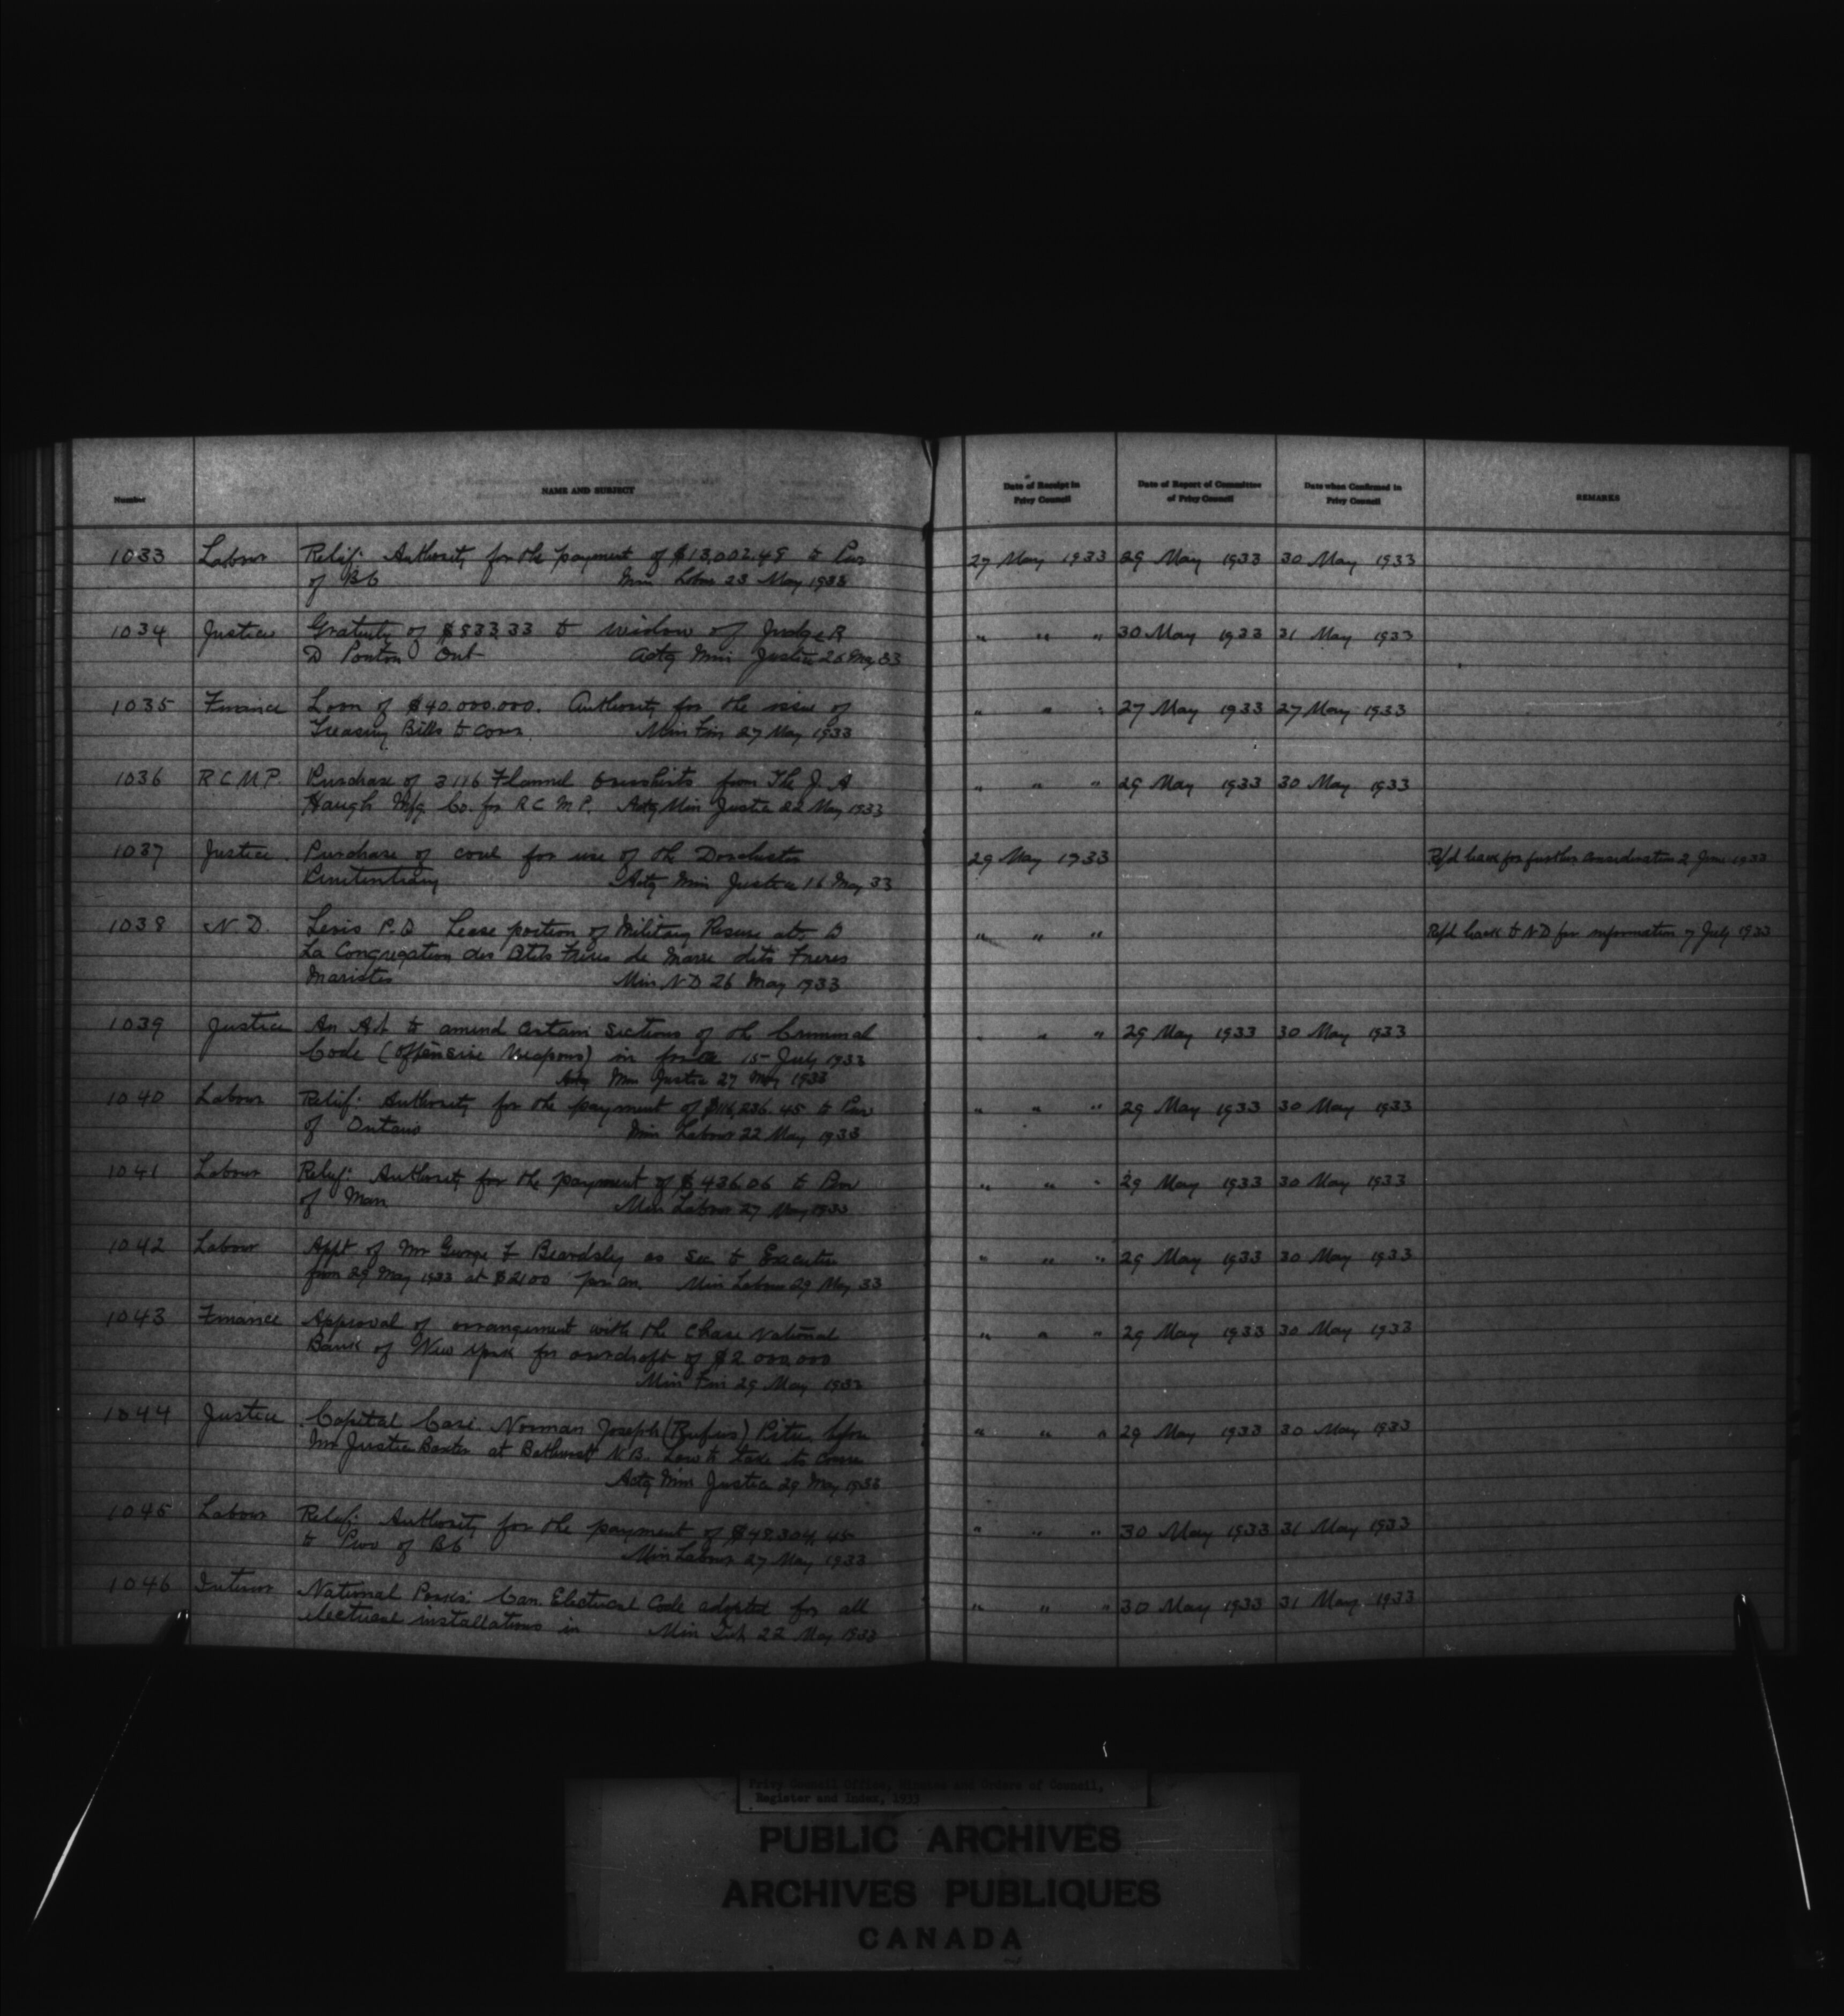 Number NAME AND SUBJECT Date of Receipt in Privy Council Date of Report of Committee of Privy Council Date when Confirmed in Privy Council REMARKS
1033 Labour Relief: Authority for the payment of $13,002.49 to Prov 27 May 1933 29 May 1933 30 May 1933
of BC Min Labour 23 May 1933
1034 Justice Gratuity of $833.33 to widow of Judge R " " " 30 May 1933 31 May 1933
D Ponton Ont Actg Min Justice 26 May 33
1035 Finance Loan of $40.000.000. Authority for the issue of " " " 27 May 1933 27 May 1933
Treasury Bills to cover. Min Fin 27 May 1933
1036 R C M P. Purchase of 3116 Flannel Overshirts from The J. A " " " 29 May 1933 30 May 1933
Haugh Mfg Co. for R C M P. Actg Min Justice 22 May 1933
1037 Justice. Purchase of coal for use of the Dorchester 29 May 1933 Refd back for further consideration 2 June 1933
Penitentiary Actg Min Justice 16 May 33
1038 N D. Levis P.Q. Lease portion of Military Reserve at to " " " Refd back to N D for information 7 July 1933
La Congregation des Petits Freres de Marie dits Freres
Maristes Min N D 26 May 1933
1039 Justice An Act to amend certain sections of the Criminal " " " 29 May 1933 30 May 1933
Code (Offensive Weapons) in force 15 July 1933
Actg Min Justice 27 May 1933
1040 Labour Relief: Authority for the payment of $116,236.45 to Prov " " " 29 May 1933 30 May 1933
of Ontario Min Labour 22 May 1933
1041 Labour Relief: Authority for the payment of $436.06 to Prov " " " 29 May 1933 30 May 1933
of Man Min Labour 27 May 1933
1042 Labour Appt of Mr George F Beardsley as Sec to Executive " " " 29 May 1933 30 May 1933
from 29 May 1933 at $2100 per an. Min Labour 29 May 33
1043 Finance Approval of arrangement with the Chase National " " " 29 May 1933 30 May 1933
Bank of New York for overdraft of $2 000,000
Min Fin 29 May 1933
1044 Justice Capital Case. Norman Joseph (Rufus) Pitre before " " " 29 May 1933 30 May 1933
Mr Justice Baxter at Bathurst N B. Law to take its course
Actg Min Justice 29 May 1933
1045 Labour Relief: Authority for the payment of $48,304.45 " " " 30 May 1933 31 May 1933
to Prov of BC Min Labour 27 May 1933
1046 Interior National Parks: Can. Electrical Code adopted for all " " " 30 May 1933 31 May 1933
electrical installations in Min Int 22 May 1933
Privy Council Office, Minutes and Orders of Council,
Register and Index, 1933
PUBLIC ARCHIVES
ARCHIVES PUBLIQUES
CANADA